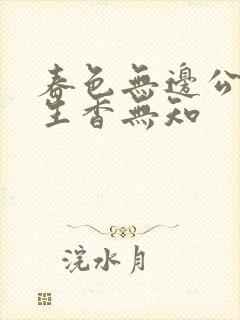 春色無邊公
生香無知
浣水月